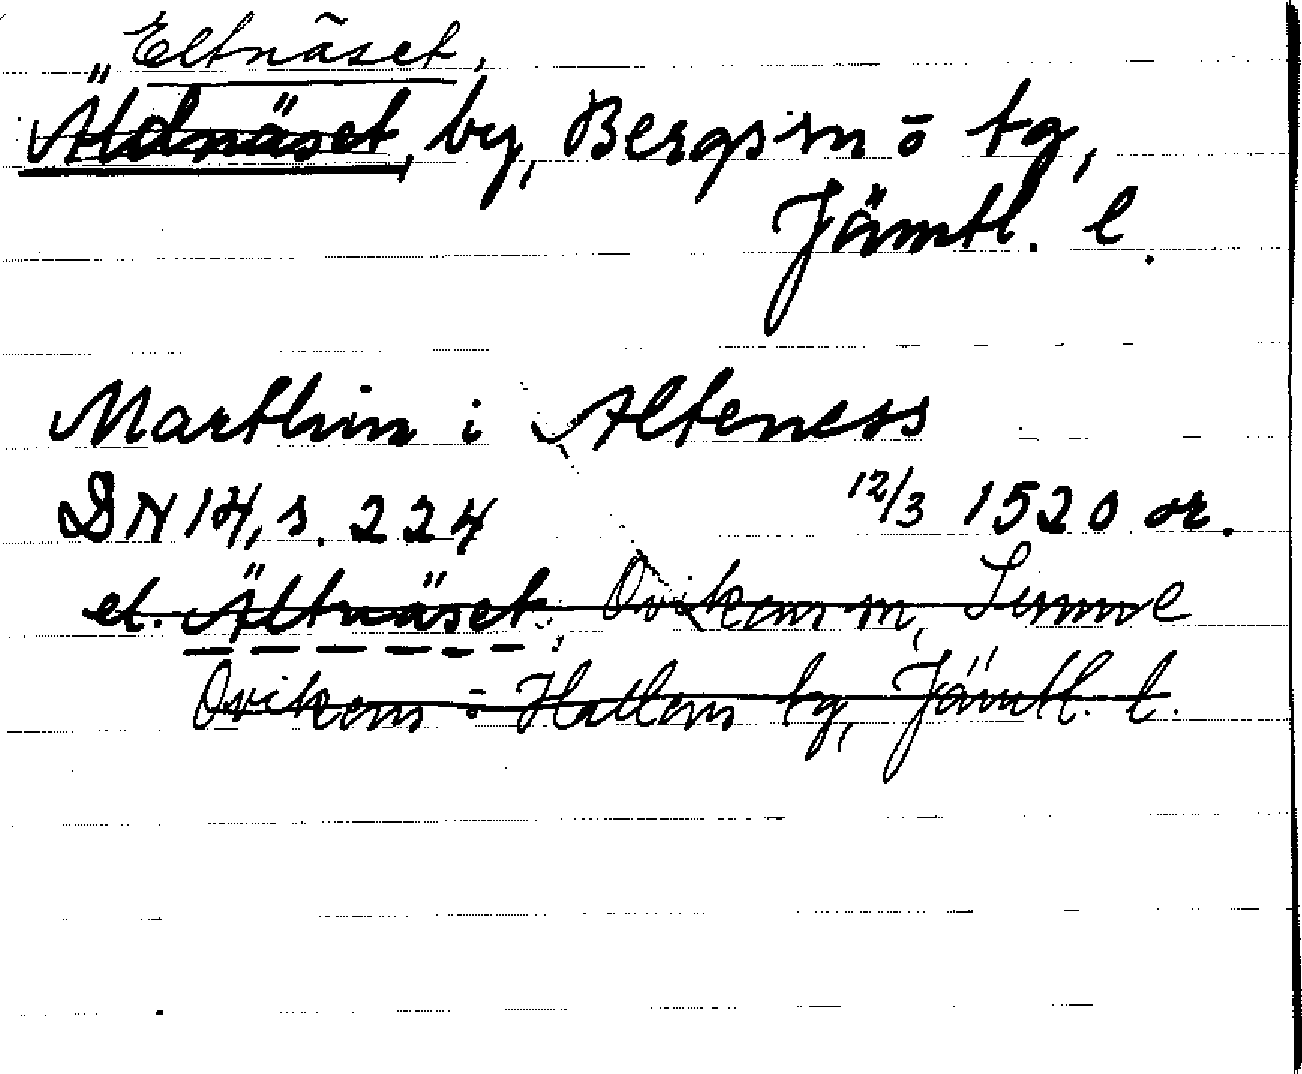 Eltnäset,
Äldnäset, by, Bergs sn o tg,
Jämtl. l.
Marthin i Alteness
DN 14, s. 224 12/3 1520 or.
el. Ältnäset, Ovikens m, Sunne
Ovikens o Hallens tg, Jämtl. l.